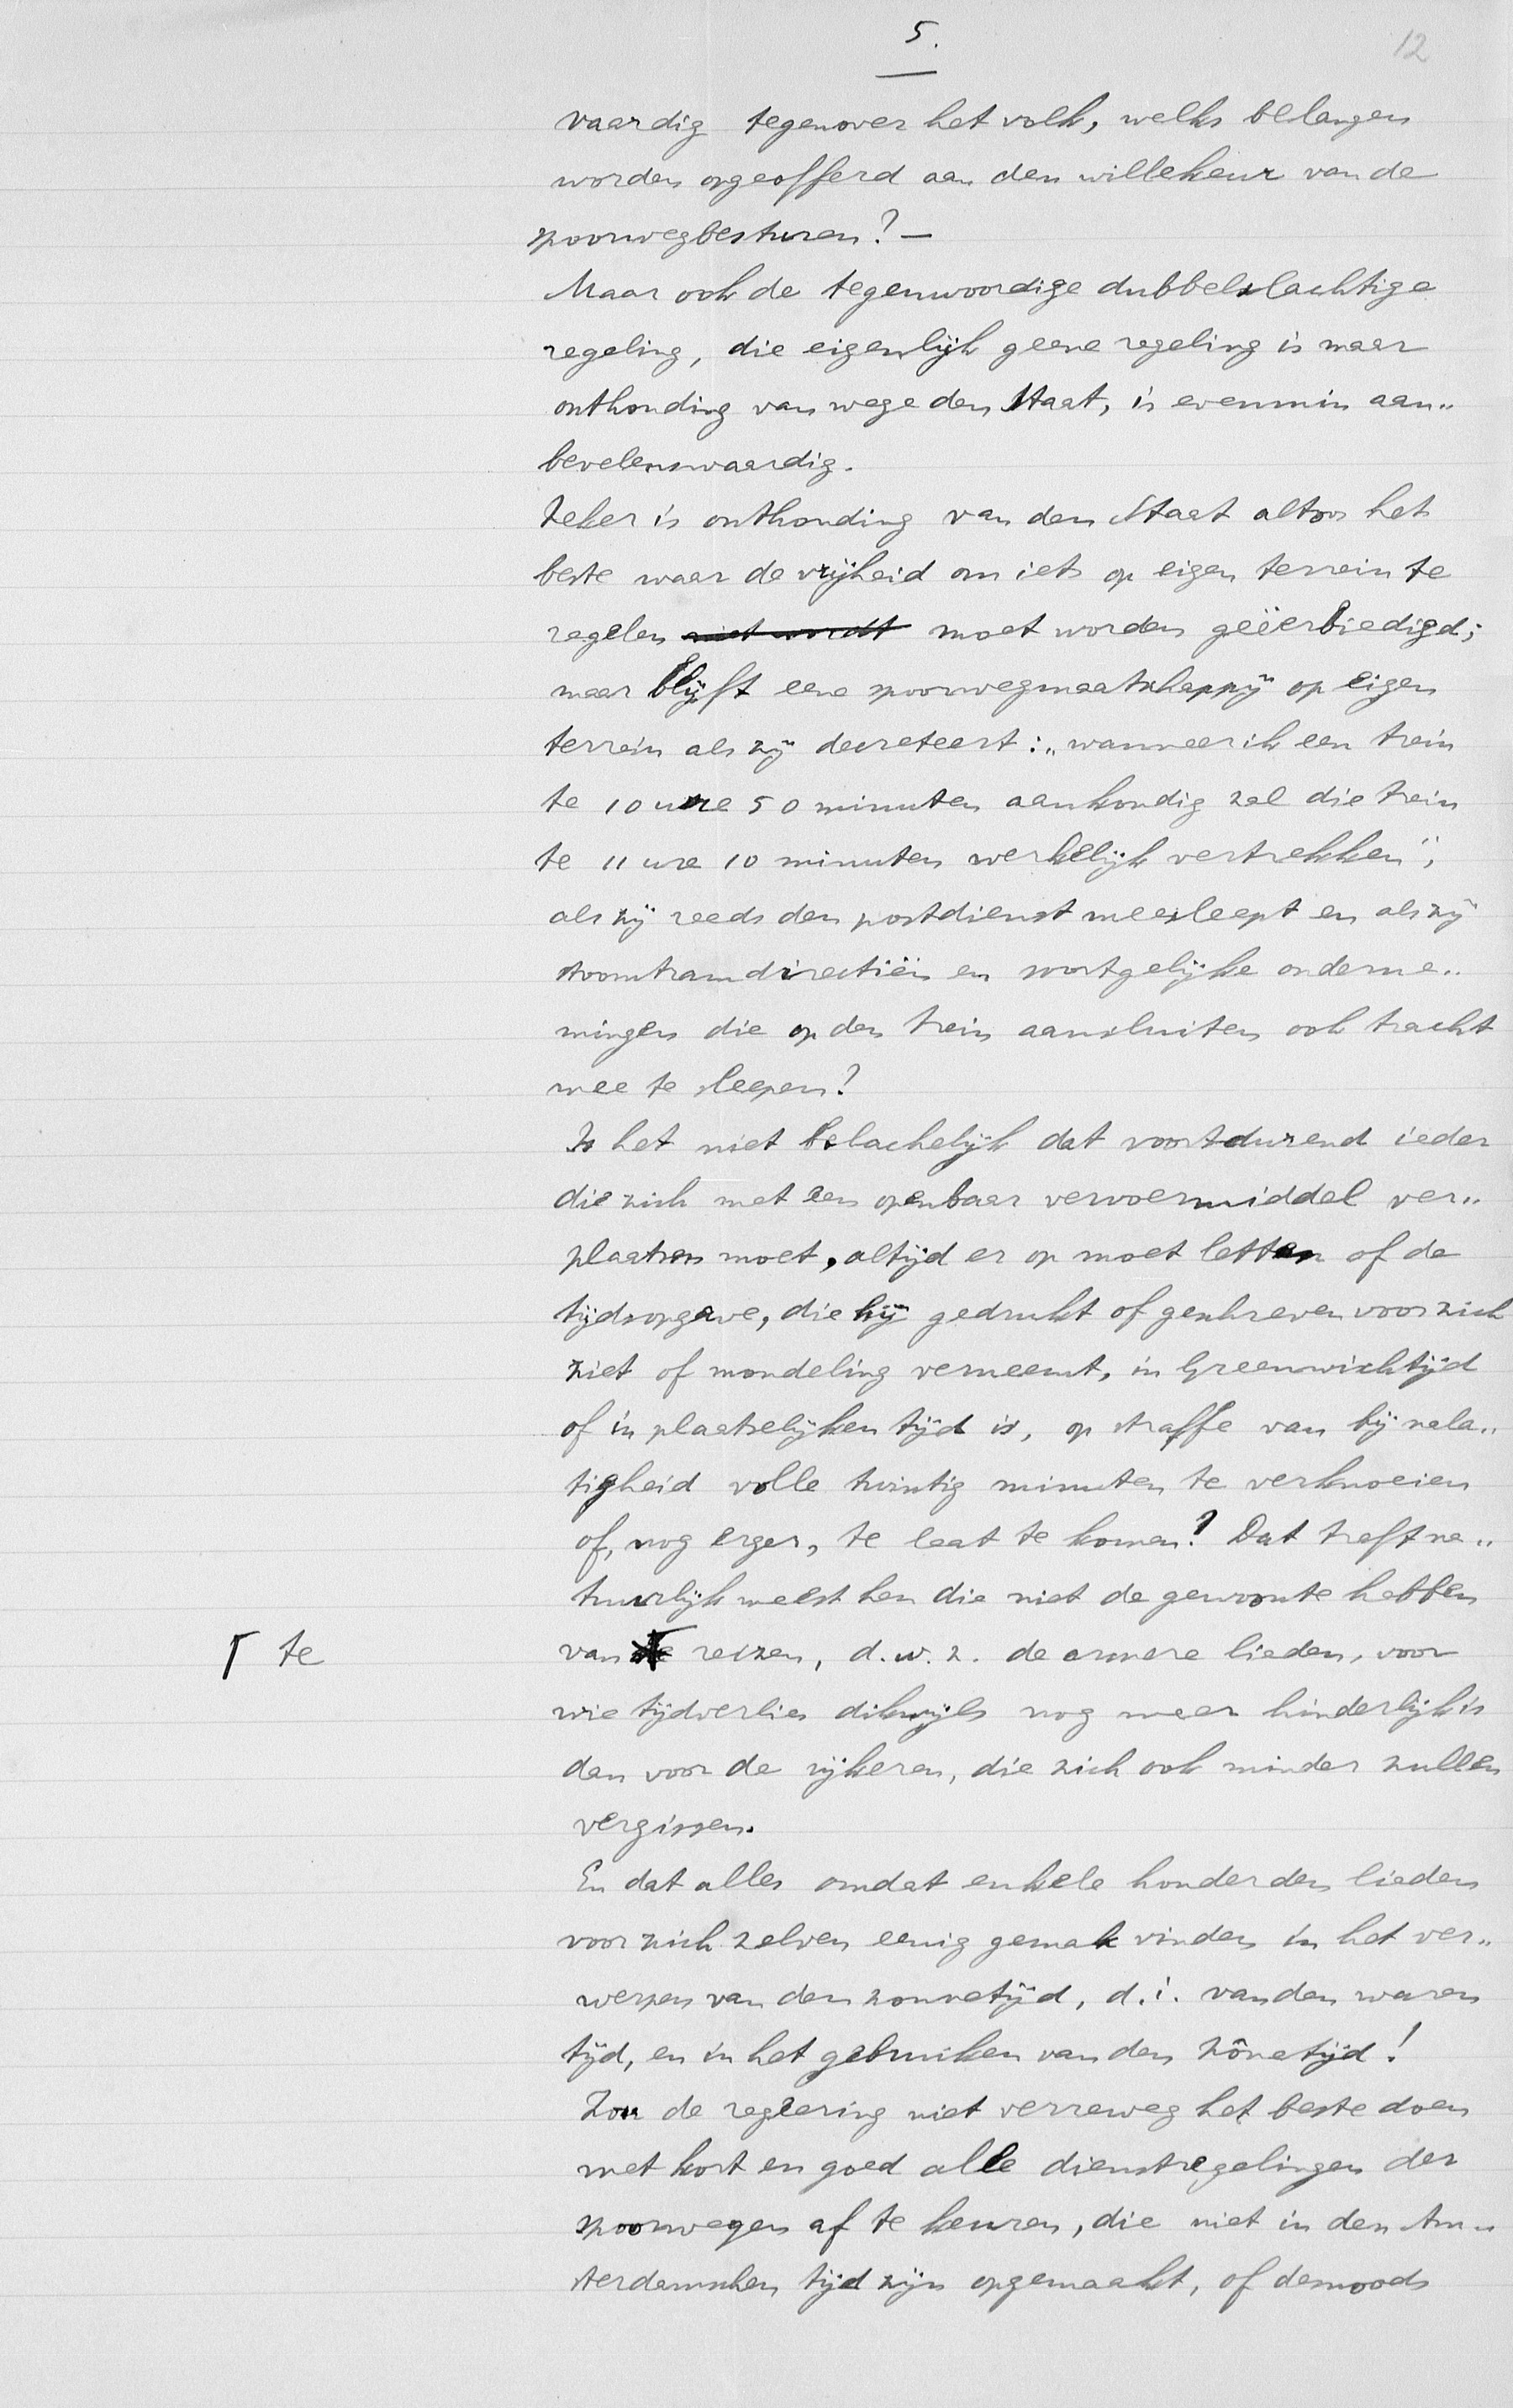 5.
12
vaardig tegenover het volk, welks belangen
worden opgeofferd aan den willekeur van de
spoorwegbesturen? —
Maar ook de tegenwoordige dubbelslachtige
regeling, die eigenlijk geene regeling is maar
onthouding van wege den Staat, is evenmin aan„
bevelenswaardig.
Zeker is onthouding van den Staat altoos het
beste waar de vrijheid om iets op eigen terrein te
regelen niet wordt moet worden geëerbiedigd;
maar blijft eene spoorwegmaatschappij op eigen
terrein als zij decreteert: „wanneer ik een trein
te 10 ure 50 minuten aankondig zal die trein
te 11 ure 10 minuten werkelijk vertrekken",
als zij reeds den postdienst meesleept en als zij
stoomtramdirectiën en soortgelijke onderne„
mingen die op den trein aansluiten ook tracht
mee te sleepen?
Is het niet belachelijk dat voortdurend ieder
die zich met een openbaar vervoermiddel ver„
plaatsen moet, altijd er op moet letten of de
tijdsopgave, die hij gedrukt of geschreven voor zich
ziet of mondeling verneemt, in Greenwichtijd
of in plaatselijken tijd is, op straffe van bij nala„
tigheid volle twintig minuten te verknoeien
of, nog erger, te laat te komen? Dat treft na„
tuurlijk meest hen die niet de gewoonte hebben
Γ te
van Γ reizen, d.w.z. de armere lieden, voor
wie tijdverlies dikwijls nog meer hinderlijk is
dan voor de rijkeren, die zich ook minder zullen
vergissen.
En dat alles omdat enkele honderden lieden
voor zich zelven eenig gemak vinden in het ver„
werpen van den zonnetijd, d.i. van den waren
tijd, en in het gebruiken van den zônetijd!
Zou de regeering niet verreweg het beste doen
met kort en goed alle dienstregelingen der
spoorwegen af te keuren, die niet in den Am„
sterdamschen tijd zijn opgemaakt, of desnoods